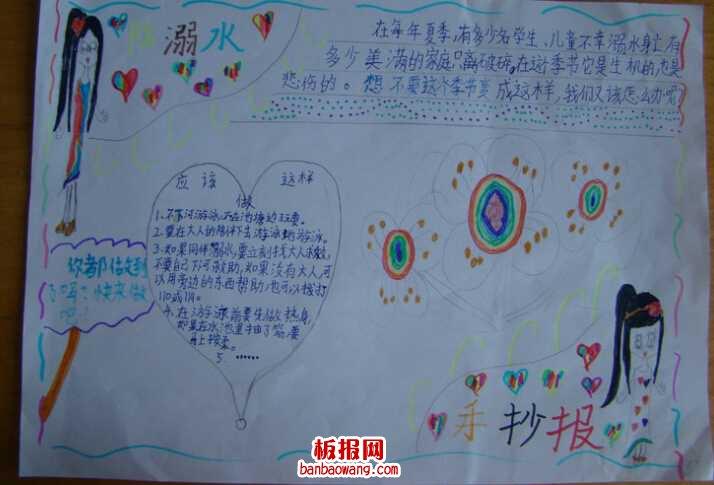 防溺水
在每年夏季,有多少名学生、儿童不幸溺水身亡有
多少美满的家庭 离破碎。在这季节它是生机的也是
悲伤的。想不要这个季节 成这样,我们又该怎么办呢
应该 这样
做
1、不下河游泳,不在池塘边玩耍。
2、要在大人的陪伴下去游泳 游泳。
3、如果同伴溺水,要立刻找大人求救,
不要自己下河救助,如果没有大人,可
以用旁边的东西帮助,也可以拨打
110或119。
4、在游泳前要先做热身,
如果在水池里抽了筋要
马上按柔。
5、……
你都做到
了吗?快来做
吧!
手抄报
板报网
banbaowang.com